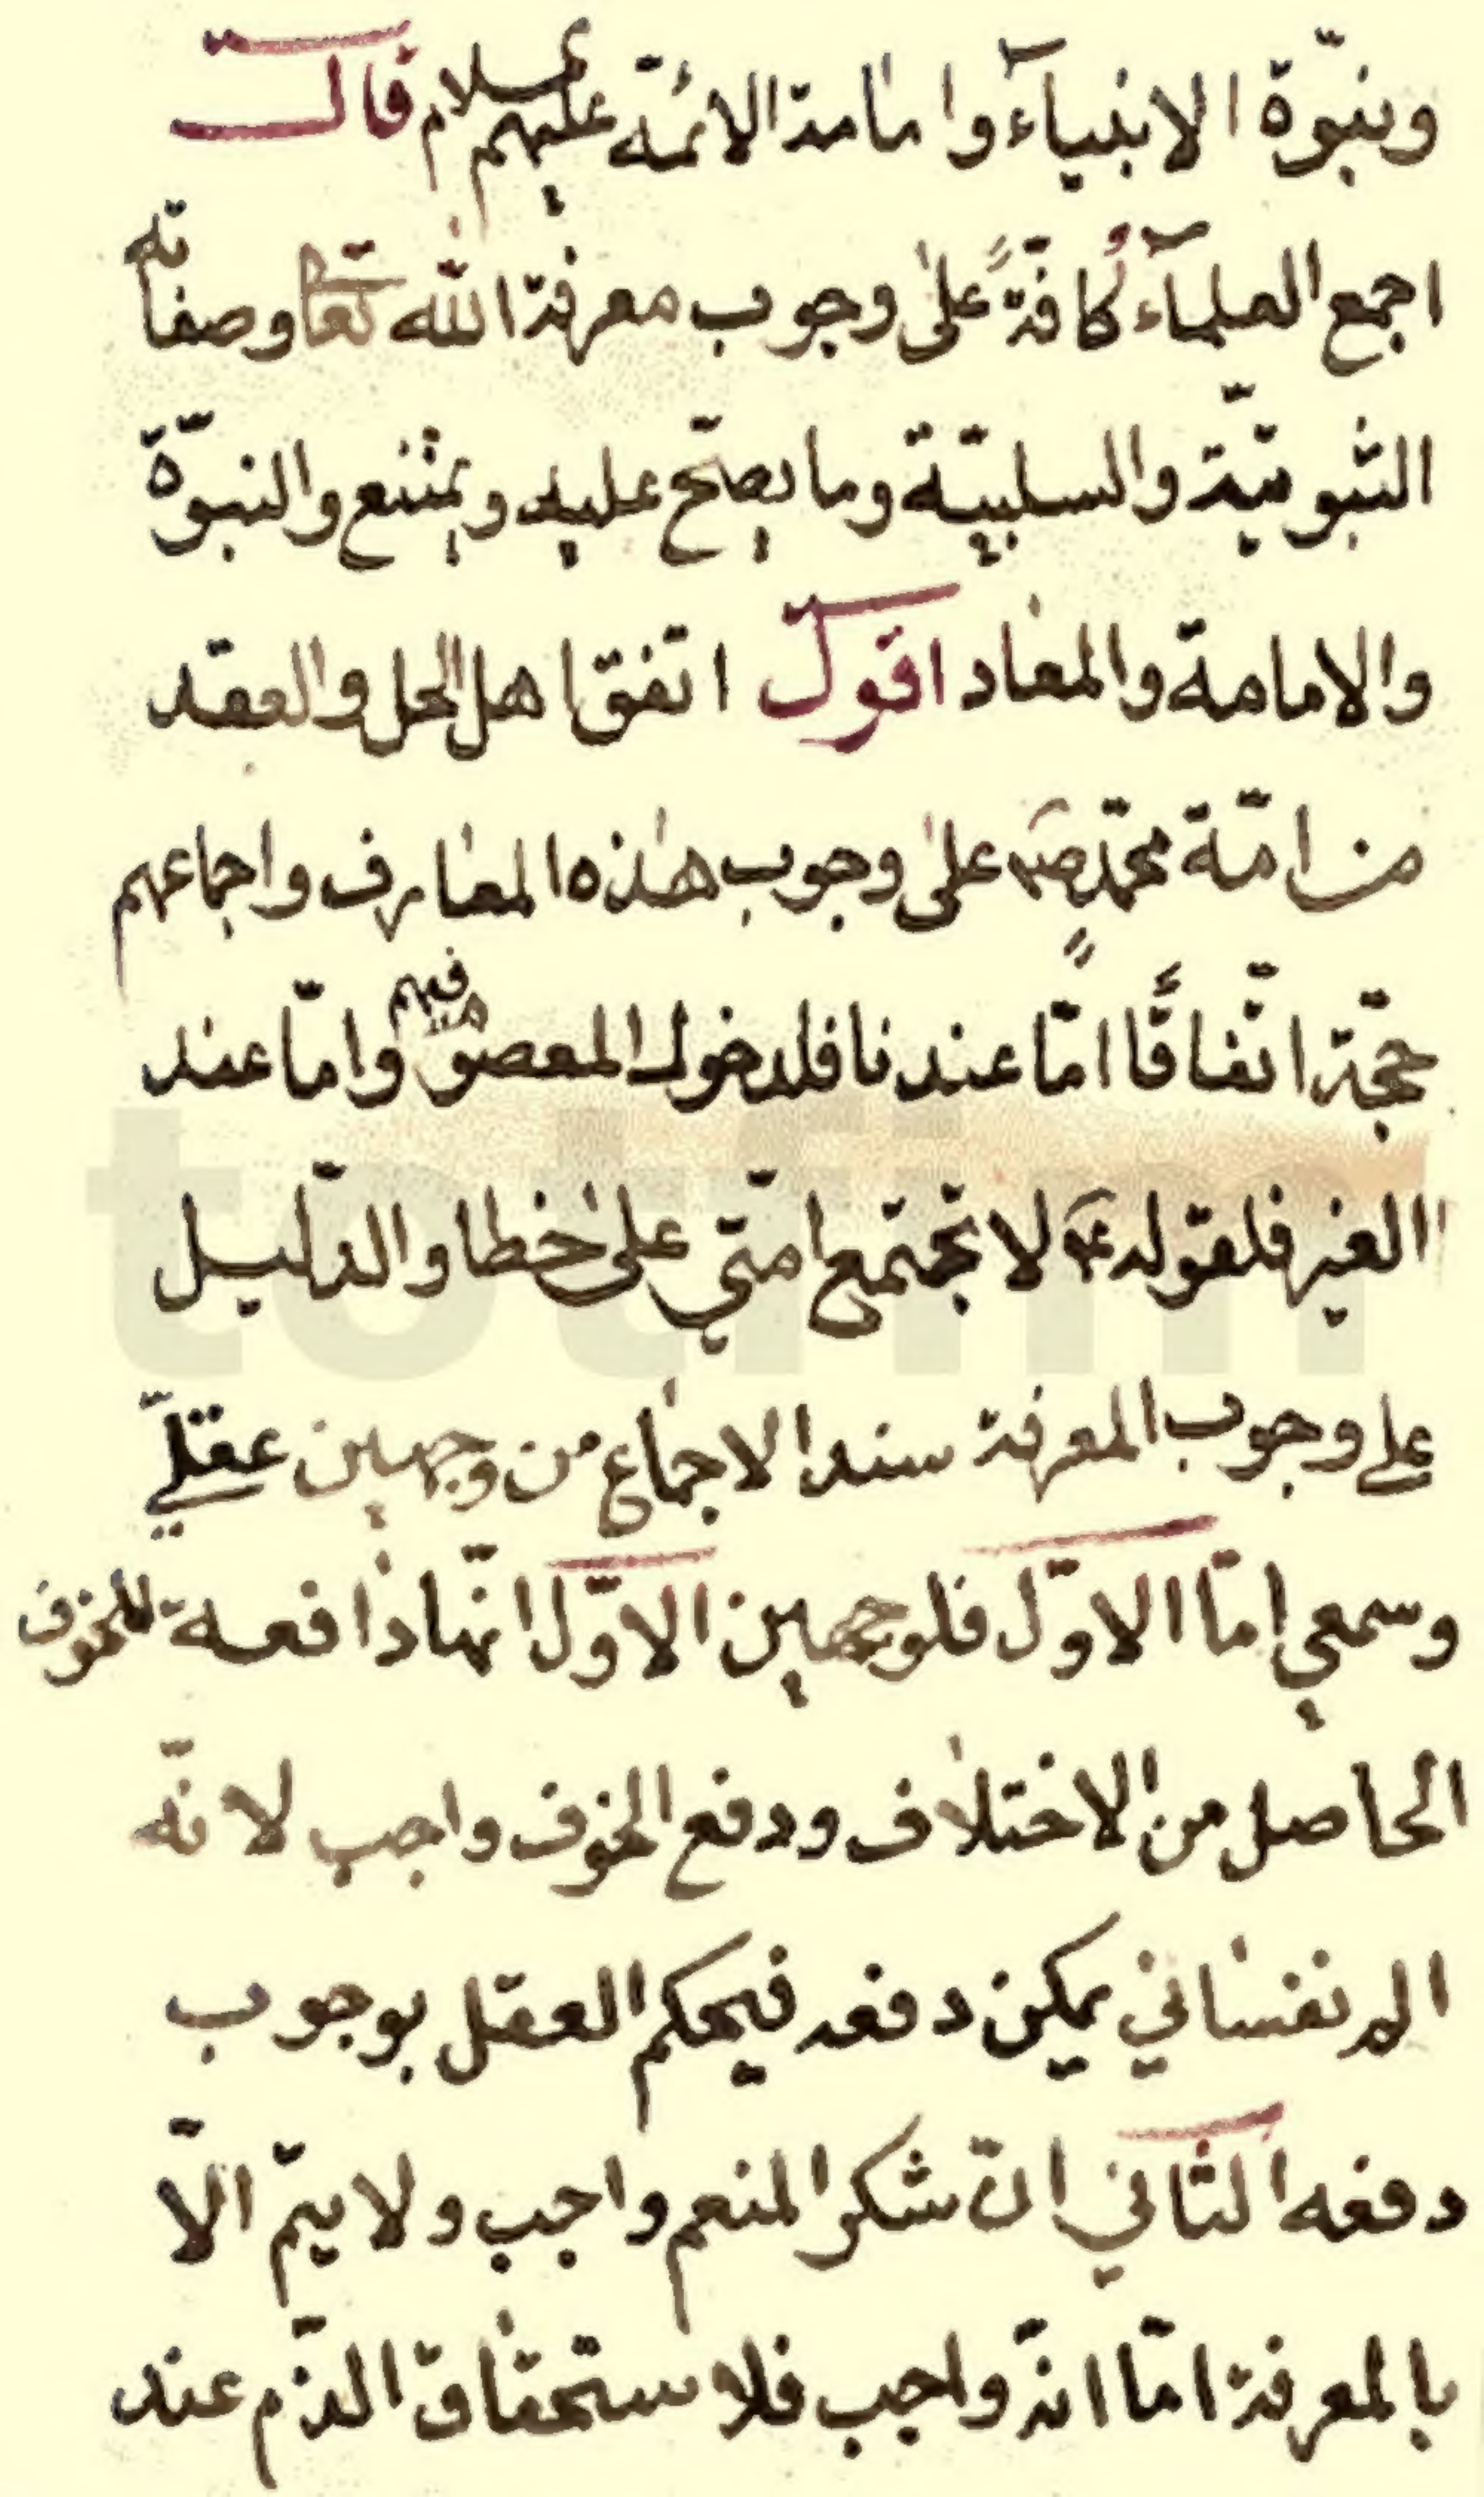 ونبوّة الانبيآء وامامة الائمّة عليهم السلام قال
اجمع العلمآء كافّةً على وجوب معرفة الله تعا وصفاته
الثبوتيّة والسلبيّة وما يصحّ عليه ويمتنع والنبوّة
والامامة والمعاد اقول اتفق اهل الحل والعقد
من امّة محمّدٍ ص على وجوب هذه المعارف واجماعهم
حجّة اتّفاقًا امّا عندنا فلدخول المعصوم فيهم وامّا عند
الغير فلقوله ع لا تجتمع امّتي على خطا والدّليل
على وجوب المعرفة سند الاجماع من وجهين عقليّ
وسمعي امّا الاوّل فلوجهين الاوّل انّها دافعة للخوف
الحاصل من الاختلاف ودفع الخوف واجب لانّه
الم نفساني يمكن دفعه فيحكم العقل بوجوب
دفعه الثاني انّ شكر المنعم واجب ولا يتمّ الّا
بالمعرفة امّا انّه واجب فلاستحقاق الذّم عند
totfim